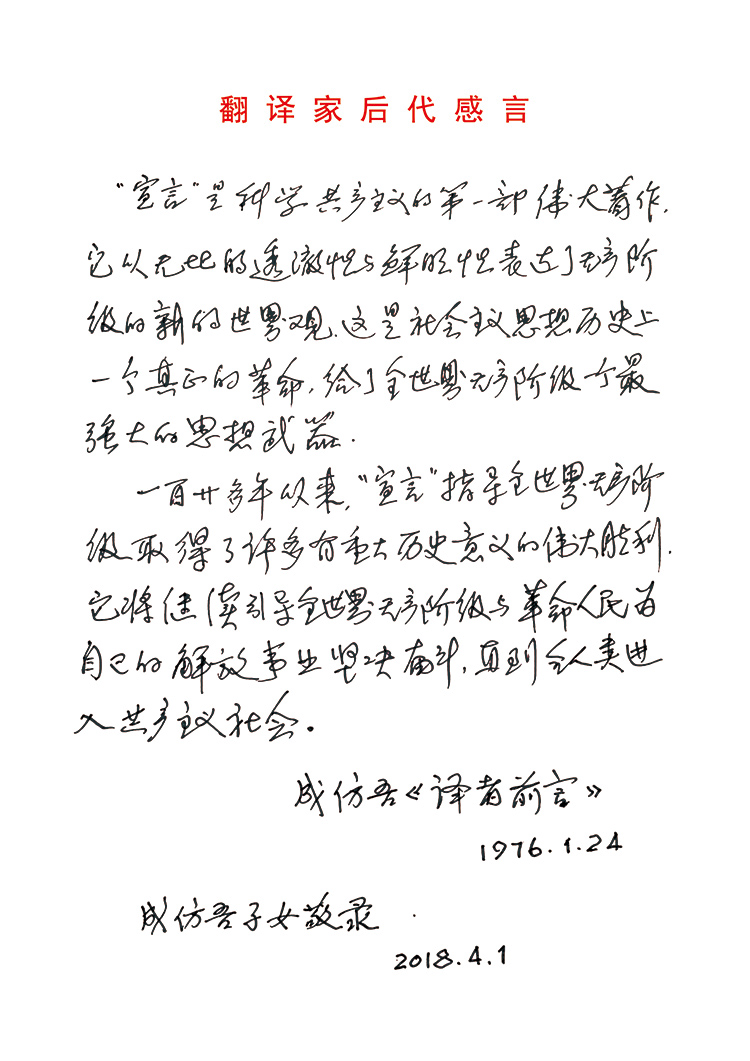 翻译家后代感言
“宣言”是科学共产主义的第一部伟大著作.
它以无比的透澈性与鲜明性表达了无产阶
级的新的世界观.这是社会主义思想历史上
一个真正的革命,给了全世界无产阶级一个最
强大的思想武器.
一百廿多年以来,“宣言”指导全世界无产阶
级取得了许多有重大历史意义的伟大胜利.
它将继续引导全世界无产阶级与革命人民为
自己的解放事业坚决奋斗,直到全人类进
入共产主义社会。
成仿吾《译者前言》
1976.1.24
成仿吾子女敬录
2018.4.1